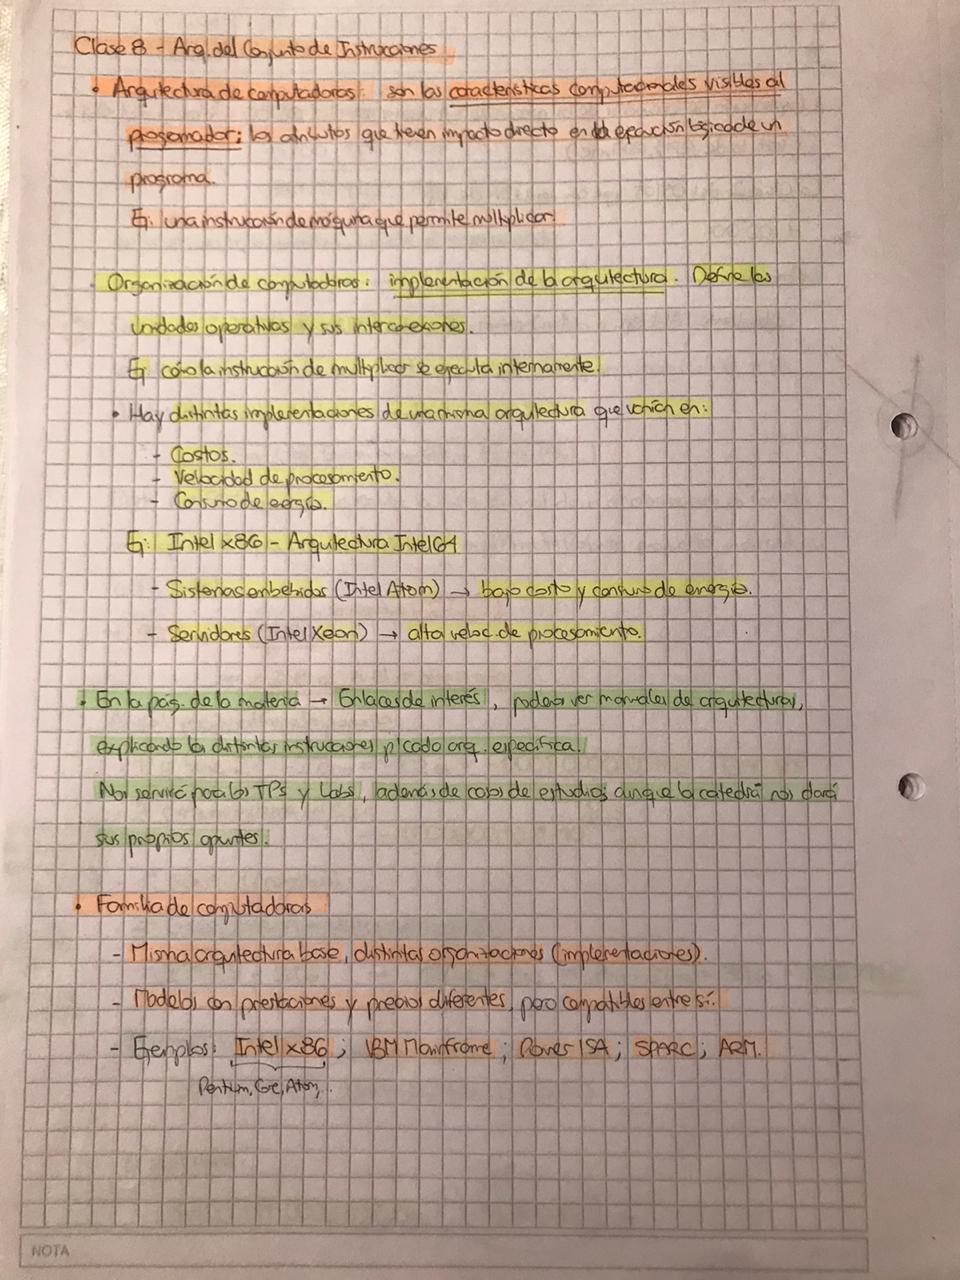 Clase 8 - Arq. del Conjunto de Instrucciones
• Arquitectura de computadoras: son las características computacionales visibles al
programador; los atributos que tienen impacto directo en la ejecución lógica de un
programa.
Ej: una instrucción de máquina que permite multiplicar.
· Organización de computadoras: implementación de la arquitectura. Define las
unidades operativas y sus interconexiones.
Ej: cómo la instrucción de multiplicar se ejecuta internamente.
• Hay distintas implementaciones de una misma arquitectura que varían en:
- Costos.
- Velocidad de procesamiento.
- Consumo de energía.
Ej: Intel x86 - Arquitectura Intel 64
- Sistemas embebidos (Intel Atom) → bajo costo y consumo de energía.
- Servidores (Intel Xeon) → alta veloc. de procesamiento.
• En la pág. de la materia → Enlaces de interés, podemos ver manuales de arquitecturas,
explicando las distintas instrucciones p/cada arq. específica.
Nos servirá para los TPs y Labs, además de cosas de estudios, aunque la cátedra nos dará
sus propios apuntes.
• Familia de computadoras
- Misma arquitectura base, distintas organizaciones (implementaciones).
- Modelos con prestaciones y precios diferentes, pero compatibles entre sí.
- Ejemplos: Intel x86; IBM Mainframe; Power ISA; SPARC; ARM.
Pentium, Core, Atom, ..
NOTA